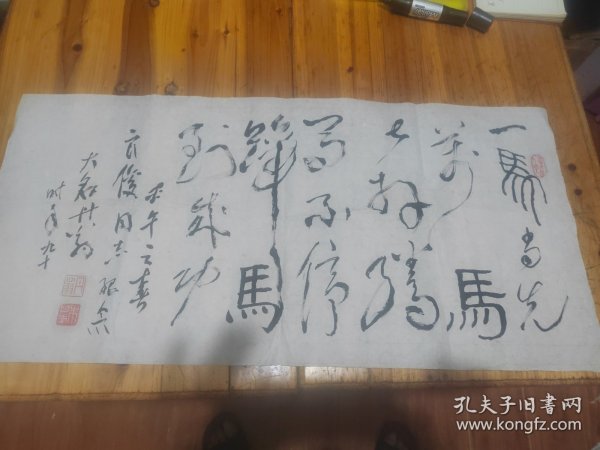 一馬当先
萬馬
奔騰
馬不停
蹄馬
到成功
午之春
俊同志
时年九十
孔夫子旧书网
www.kongfz.com